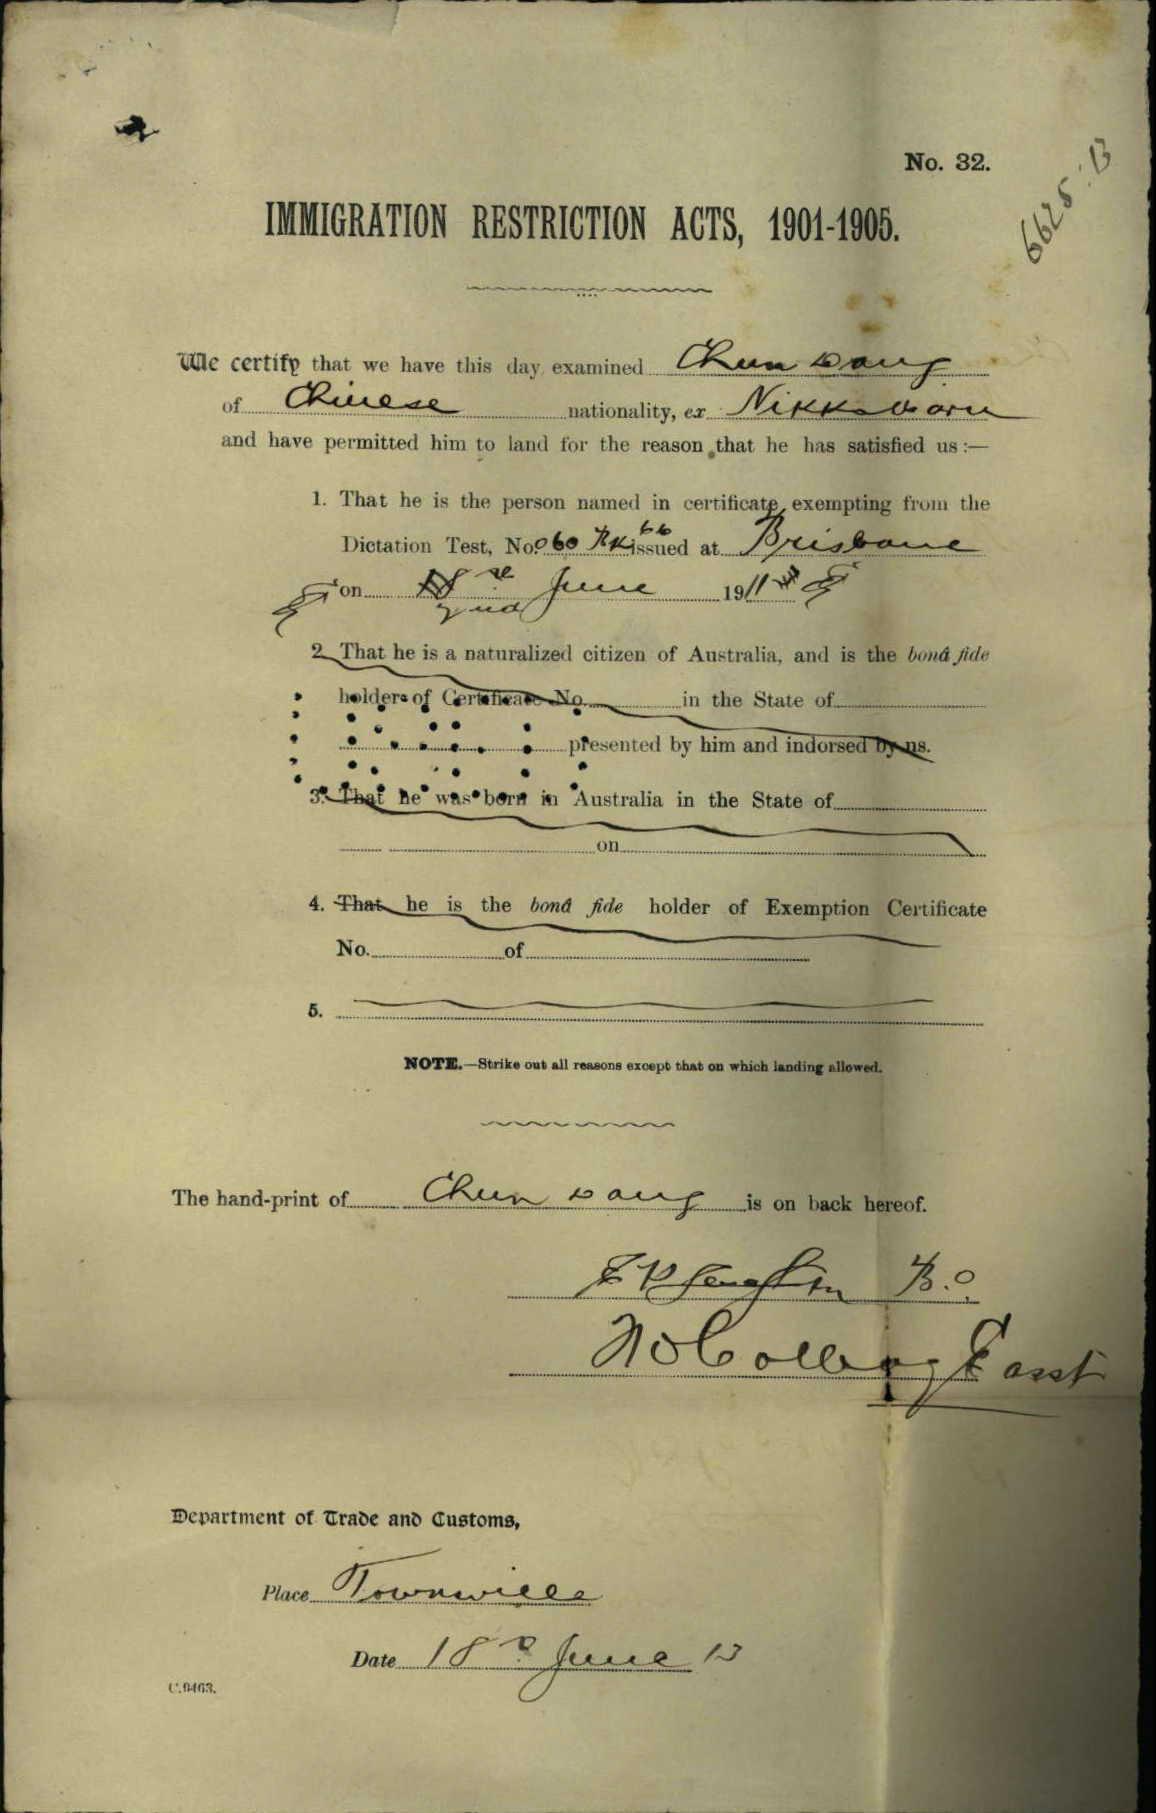 No. 32.
6628.13
IMMIGRATION RESTRICTION ACTS, 1901-1905.
We certify that we have this day examined Chun Wang
of Chinese nationality, ex Nikko Maru
and have permitted him to land for the reason that he has satisfied us:—
1. That he is the person named in certificate exempting from the
Dictation Test, No. 060 Bk 66 issued at Brisbane
on 18th 2nd June 1911
2. That he is a naturalized citizen of Australia, and is the bonâ fide
holder of Certificate No. in the State of
presented by him and indorsed by us.
3. That he was born in Australia in the State of
on
4. That he is the bonâ fide holder of Exemption Certificate
No. of
5.
NOTE.—Strike out all reasons except that on which landing allowed.
The hand-print of Chun Wang is on back hereof.
B.O.
E asst
Department of Trade and Customs,
Place Townsville
Date 18th June 13
C.9463.